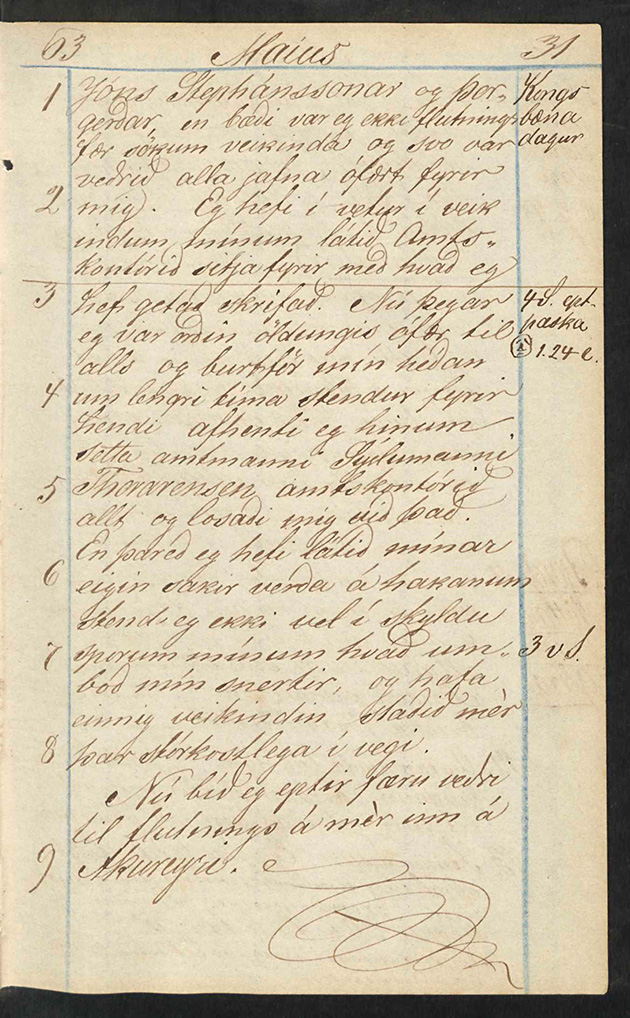 63 Maius 31
1 Jóns Stephánssonar og Þor- Kongs
gerðar, en bæði var eg ekki flutnings bæna
fær sökum veikinda og svo var dagur
veðrið alla jafna ófært fyrir
2 mig). Eg hefi í vetur í veik
indum mínum látið Amts-
kontórið sitja fyrir með hvað eg
3 hefi getað skrifað. Nú þegar 4 S. ept.
eg var orðin öldungis ófær til paska
alls og burtför mín héðan 1.24 e.
4 um lengri tíma stendur fyrir
hendi afhenti eg hinum
setta amtmanni Sýslumanni
5 Thorarensen amtskontórið
allt og losaði mig við það.
En þareð eg hefi látið mínar
6 eigin sakir verða á hakanum
stend eg ekki vel í skyldu
7 sporum mínum hvað um- 3 v S.
boð mín snertir, og hafa
einnig veikindin staðið mèr
8 þar stórkostlega í vegi.
Nú bíð eg eptir færu veðri
til flutnings á mèr inn á
9 Akureyri.